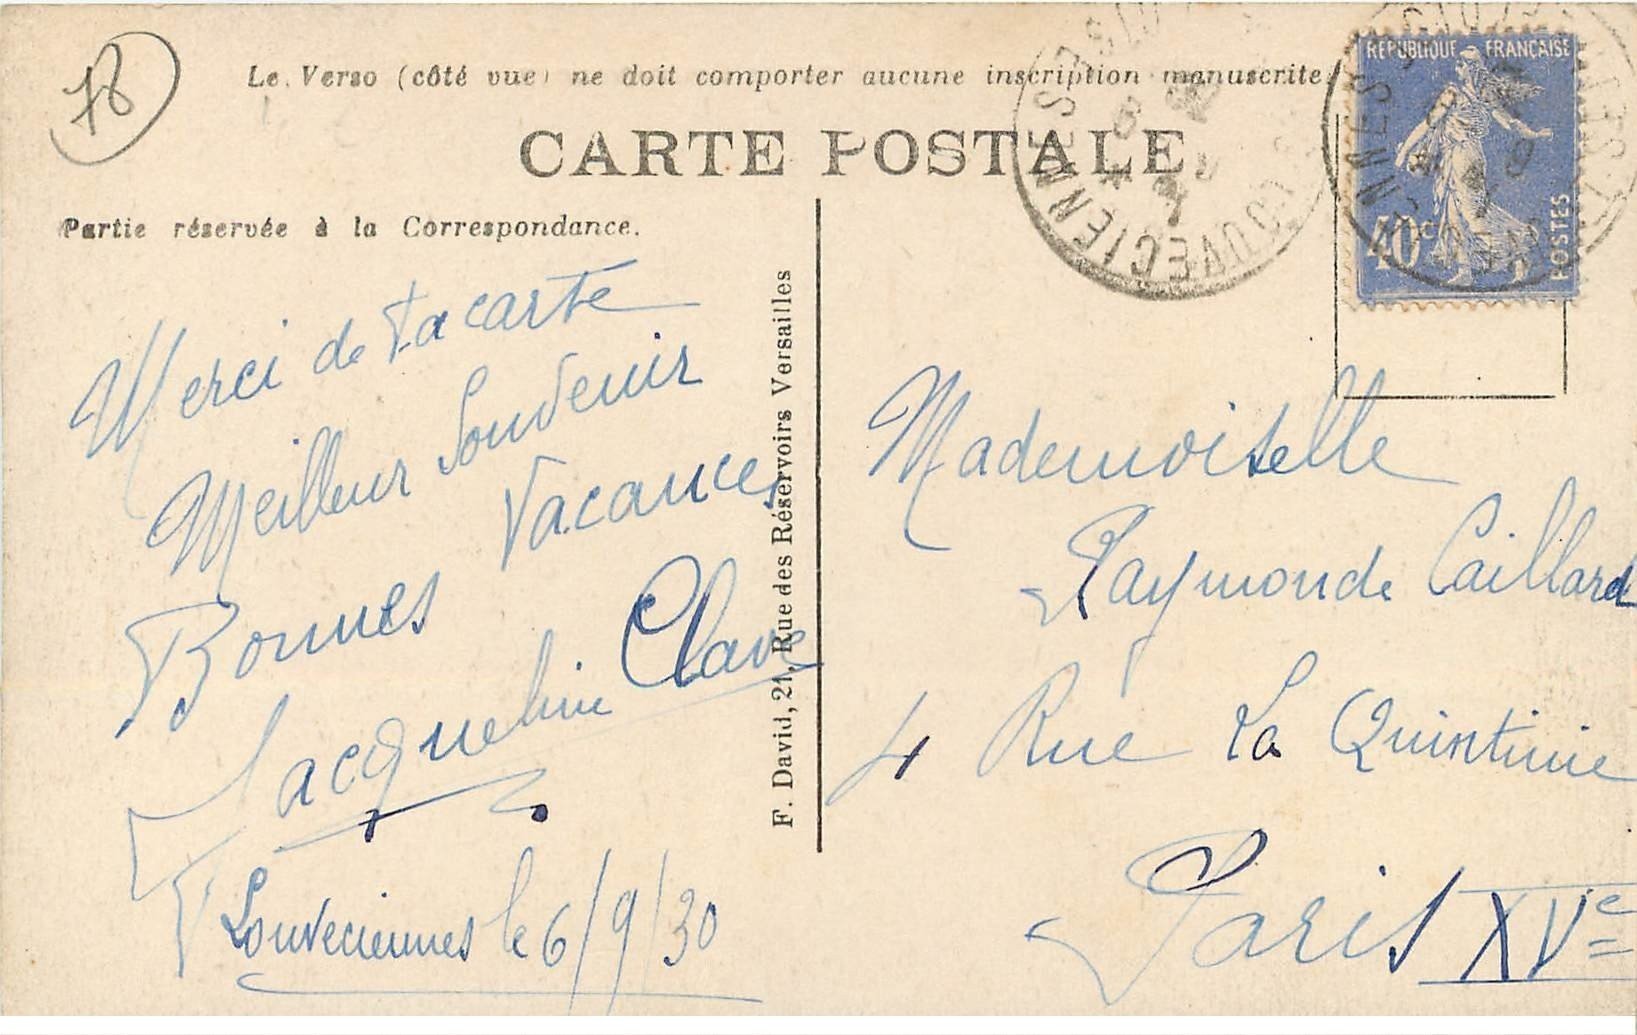 78
Le Verso (côté vue) ne doit comporter aucune inscription manuscrite
CARTE POSTALE
Partie réservée à la Correspondance.
Merci de ta carte
Meilleur Souvenir
Bonnes Vacances
Jacqueline Clave
Louveciennes le 6/9/30
F. David, 21, Rue des Réservoirs Versailles
LOUVECIENNES
RÉPUBLIQUE FRANÇAISE
40c
POSTES
Mademoiselle
Raymonde Caillard
4 Rue La Quintinie
Paris XVe